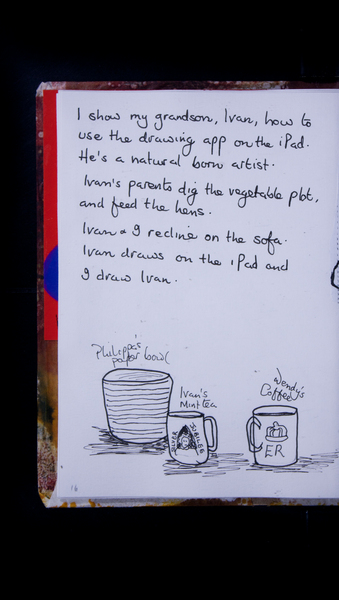 I show my grandson, Ivan, how to
use the drawing app on the iPad.
He's a natural born artist.
Ivan's parents dig the vegetable plot,
and feed the hens.
Ivan & I recline on the sofa.
Ivan draws on the iPad and
I draw Ivan.
Philippa's
paper bowl
Ivan's
Mint tea
Wendy's
Coffee
SILVER JUBILEE
ER
16